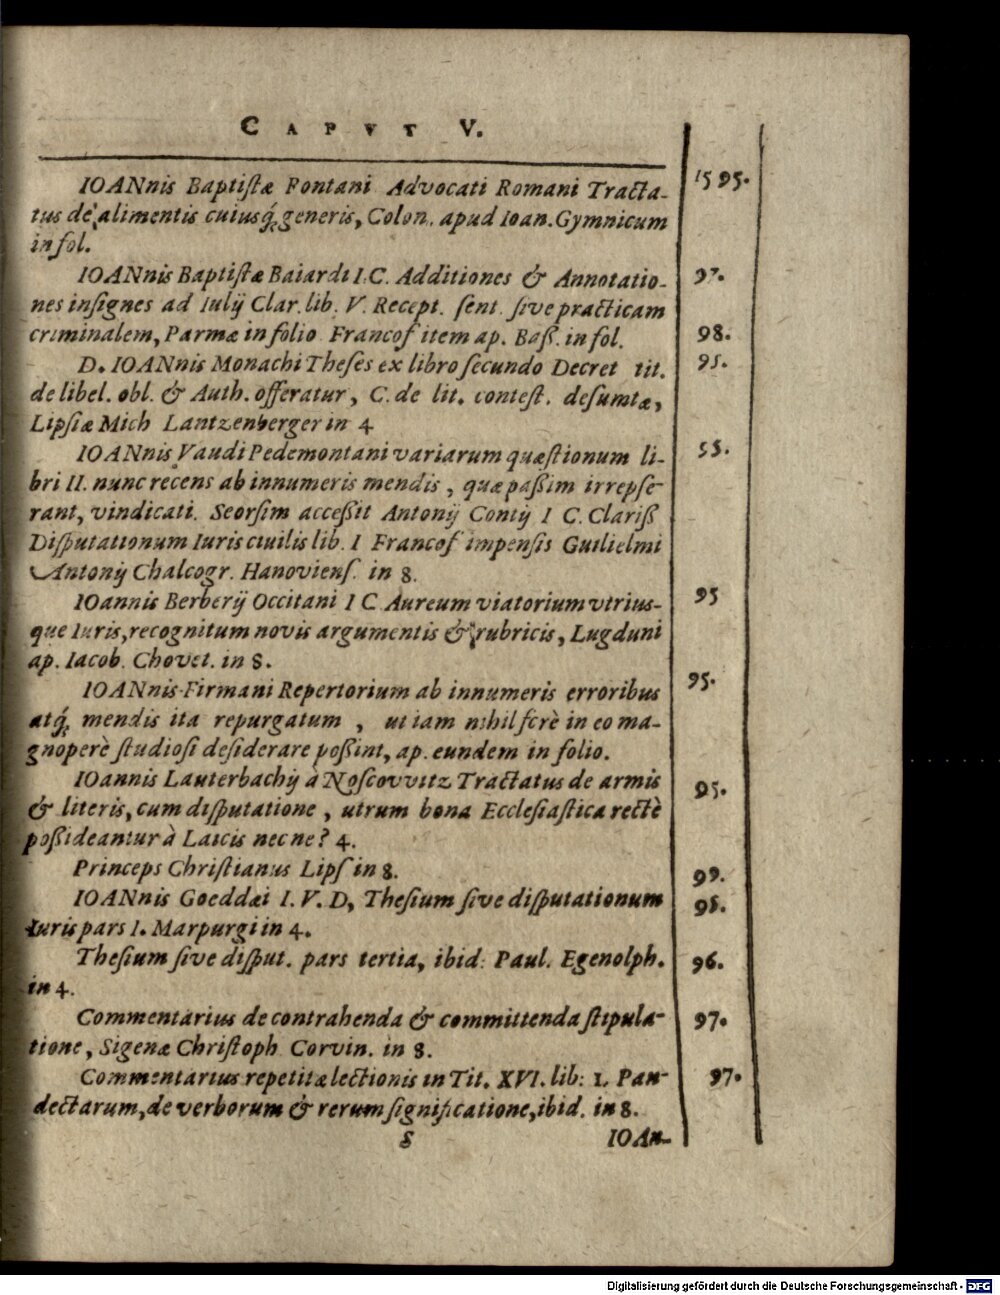 CAPVT V.
IOANnis Baptistæ Pontani Advocati Romani Tracta- 1595.
tus de alimentis cuiusq́; generis, Colon. apud Ioan. Gymnicum
in fol.
IOANnis Baptistæ Baiardi I.C. Additiones & Annotatio- 97.
nes insignes ad Iulij Clar. lib. V. Recept. sent. sive practicam
criminalem, Parmæ in folio Francof item ap. Baß. in fol. 98.
D. IOANnis Monachi Theses ex libro secundo Decret tit. 95.
de libel. obl. & Auth. offeratur, C. de lit. contest. desumtæ,
Lipsiæ Mich Lantzenberger in 4
IOANnis Vaudi Pedemontani variarum quæstionum li- 95.
bri II. nunc recens ab innumeris mendis, quæ paßim irrepse-
rant, vindicati. Seorsim acceßit Antonij Contij I C. Clariß
Disputationum Iuris ciuilis lib. I Francof impensis Guilielmi
Antonij Chalcogr. Hanoviens. in 8.
IOannis Berberij Occitani I C Aureum viatorium vtrius- 95
que Iuris, recognitum novis argumentis & rubricis, Lugduni
ap. Iacob. Chovet. in 8.
IOANnis Firmani Repertorium ab innumeris erroribus 95.
atq́; mendis ita repurgatum, ut iam nihil ferè in eo ma-
gnoperè studiosi desiderare poßint, ap. eundem in folio.
IOannis Lauterbachij à Noscovvitz Tractatus de armis 95.
& literis, cum disputatione, utrum bona Ecclesiastica rectè
poßideantur à Laicis nec ne? 4.
Princeps Christianus Lips in 8. 99.
IOANnis Goeddæi I. V. D, Thesium sive disputationum 95.
Iuris pars I. Marpurgi in 4.
Thesium sive disput. pars tertia, ibid: Paul. Egenolph. 96.
in 4.
Commentarius de contrahenda & committenda stipula- 97.
tione, Sigenæ Christoph Corvin. in 8.
Commentarius repetitæ lectionis in Tit. XVI. lib: 1. Pan- 97.
dectarum, de verborum & rerum significatione, ibid. in 8.
S IOAn-
Digitalisierung gefördert durch die Deutsche Forschungsgemeinschaft - DFG